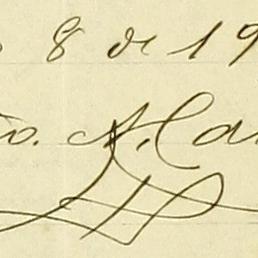 8 de 19
to. A. Ca